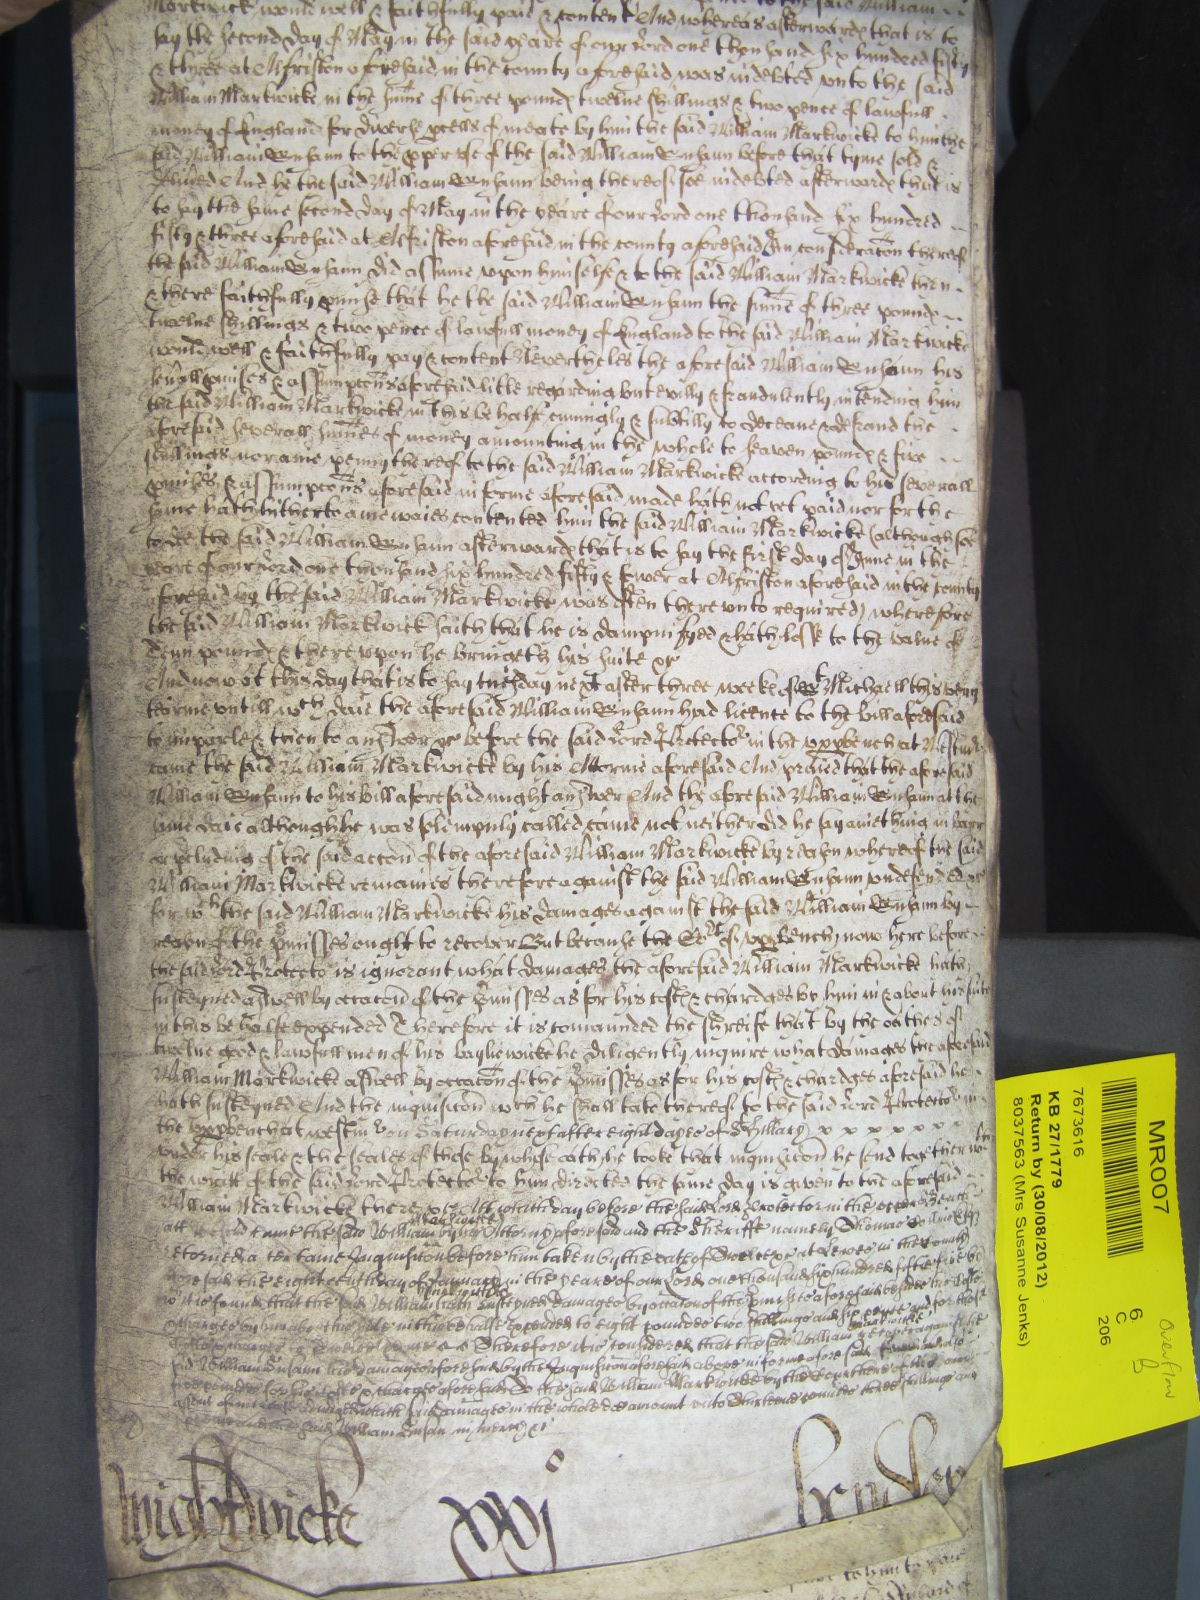 Markwick would well & faithfully paid & content And whereas afterwards that is to
say the second day of May in the said yeare of our Lord one thousand six hundred fifty
& three at Alfriston aforesaid in the county aforesaid was indebted unto the said
William Markwicke in the sume of three pounds twelve shillings & two pence of lawfull
money of England for diverse pcells of meate by him the said William Markwicke to him the
said William to the pper use of the said William before that tyme sold &
And he the said William being thereof soe indebted afterwards that is
to say the same second day of May in the yeare of our Lord one thousand six hundred
fifty & three aforesaid at Alfriston aforesaid in the county aforesaid In consideracon thereof
the said William did assume upon himselfe & to the said William Markwicke then
& there faithfully pmise that he the said William the sume of three pounds
twelve shillings & two pence of lawfull money of England to the said William Markwicke
would well & faithfully pay & content Neverthelesse the aforesaid William his
sevall pmises & assumpcons aforesaid little regarding but & fraudulently intending him
the said William Markwicke in this behalfe cunningly & subtilly to deceave & defraud the
aforesaid severall sumes of money amounting in the whole to seaven pounds & five
shillings nor anie penny thereof to the said William Markwicke according to his severall
pmises & assumpcons aforesaid in forme aforesaid made hath not yet paid nor for the
same hath hitherto anie waies contented him the said William Markwicke (although soe
to doe the said William afterwards that is to say the first day of June in the
yeare of our Lord one thousand six hundred fifty & fower at Alfriston aforesaid in the county
aforesaid by the said William Markwicke was often thereunto required) wherefore
the said William Markwick saith that he is dampnifyed & hath losse to the value of
Tenn pounds & thereupon he bringeth his suite &c
And now at this day that is to say tuesday next after three weekes of St Michaell this very
tearme untill wch daie the aforesaid William had licence to the bill aforesaid
to imparle & then to answer &c before the said Lord Protector in the upper bench at Westmr
came the said William Markwicke by his Attorne aforesaid And prayed that the aforesaid
William to his bill aforesaid might answer And the aforesaid William at the
same daie although he was solempnly called came not neither did he say aniething in barr
or pcluding of the said accon of the aforesaid William Markwicke by reason whereof the said
William Markwicke remaines therefore against the said William undefended &c
for wch the said William Markwicke his damages against the said William by
reason of the pmisses ought to recover But because the Cort of uppbench now here before
the said Lord Protector is ignorant what damages the aforesaid William Markwicke hath
susteyned aswell by occacon of the pmisses as for his costs & chardges by him in & about his suite
in this behalfe expended Therefore it is comaunded the shreife that by the oathes of
twelve good & lawfull men of his bayliewicke he diligently inquire what damages the aforesaid
William Markwicke aswell by occacon of the pmisses as for his costs & chardges aforesaid he
hath susteyned And the inquisicon wch he shall take thereof to the said Lord Protector in
the uppbench at westmr on Saturday next after eight dayes of St Hillary x x x x x x x
under his seale & the seales of those by whose oath he tooke that inquisicon he send together with
the writt of the said Lord Protector to him directed the same day is given to the aforesaid
William Markwicke there &c At which day before the said Lord Protector in the upper Bench
att came the said William Markwicke by his Attorny aforesaid and the Sheriffe namely Thomas
retorned a certaine Inquisition before him taken by the oath of Twelve &c at Lewes in the County
aforesaid the eighteenth day of January in the yeare of our Lord one thousand six hundred fiftie five by
wch it is found that the said William Markwicke hath susteyned damages by occacon of the pmisses aforesaid besides his costs
& charges by him about his suite in this behalfe expended to eight poundes two shillings and six pence and for those
costs & charges to Therefore it is considered that the said William Markwicke recover against the
said William his damages aforesaid by the Inquisition aforesaid above in forme aforesaid found
for his costs & charges aforesaid to the said William Markwicke by the Court here of his owne
assent of increase adiudged which said damages in the whole doe amount unto Thirteene poundes three shillings and
And the said William in mercy &c
Wightwicke xxvj
MR007
6
C
206
overflow
B
7673616
KB 27/1779
Return by (30/08/2012)
8037563 (Mrs Susanne Jenks)